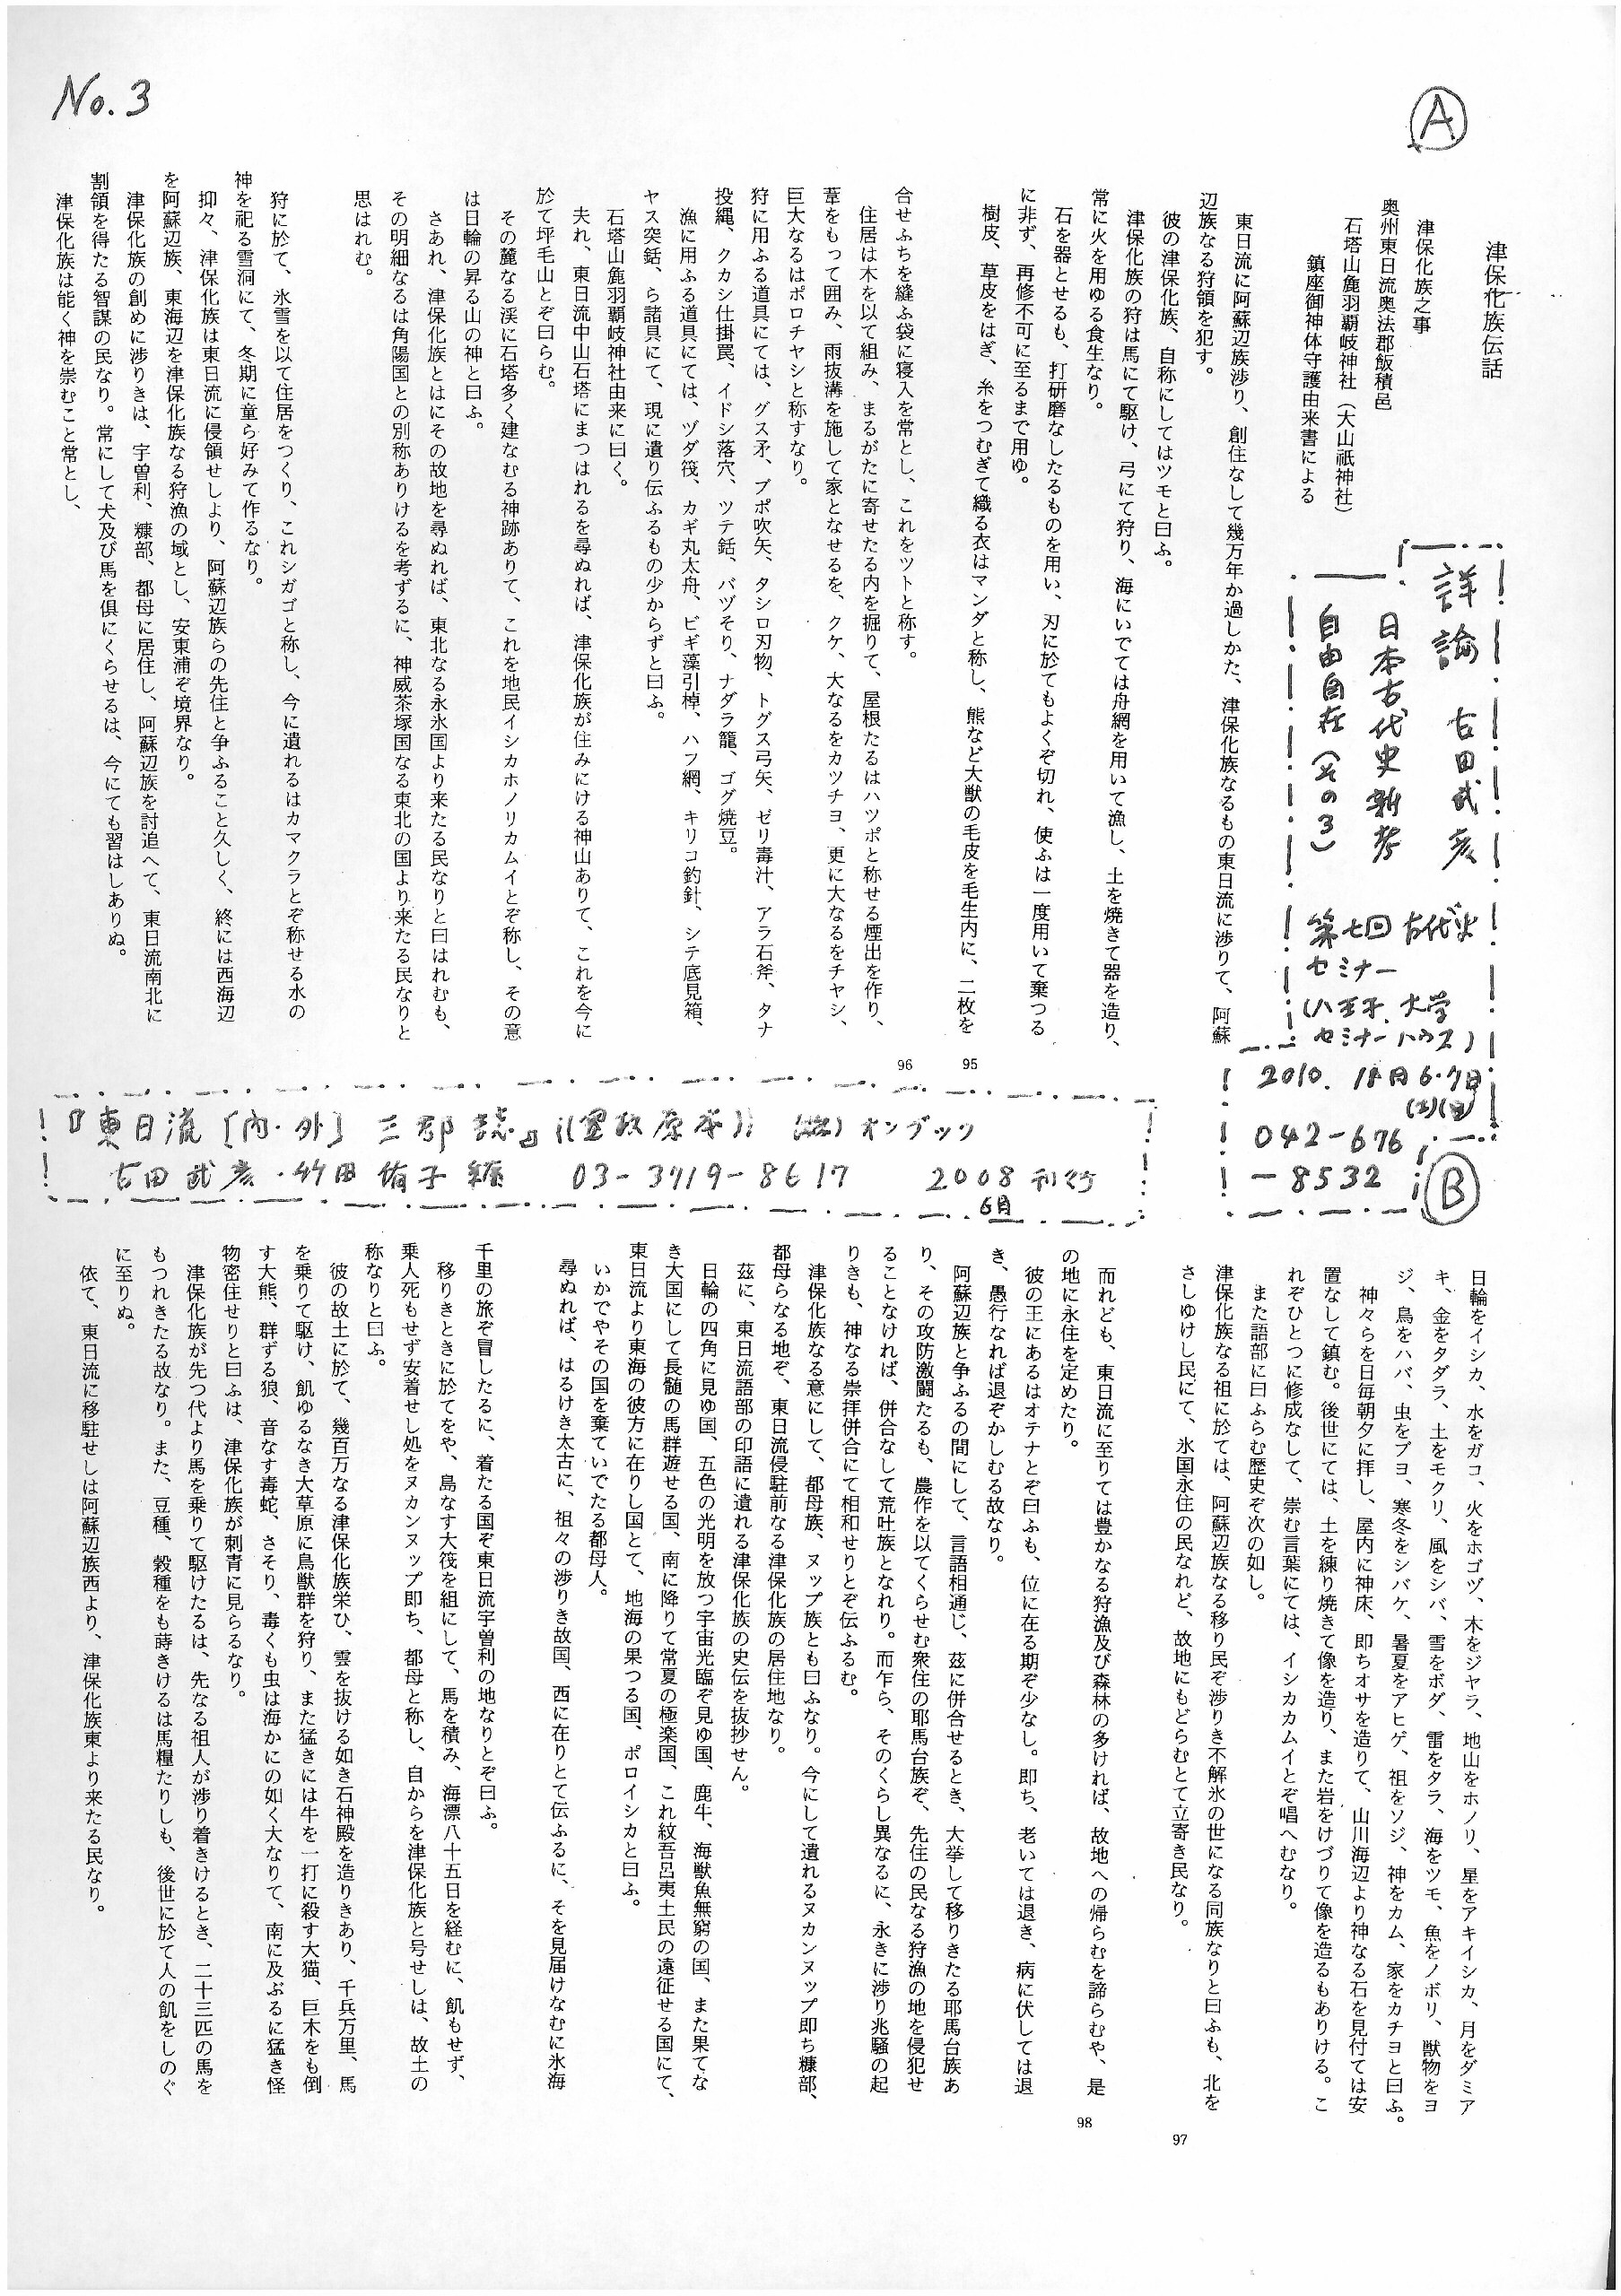 No. 3
Ⓐ
津保化族伝話
津保化族之事
奥州東日流奥法郡飯積邑
石塔山麁羽覇岐神社(大山祇神社)
鎮座御神体守護由来書による
東日流に阿蘇辺族渉り、創住なして幾万年か過しかた、津保化族なるもの東日流に渉りて、阿蘇
辺族なる狩領を犯す。
彼の津保化族、自称にしてはツモと曰ふ。
津保化族の狩は馬にて駆け、弓にて狩り、海にいでては舟網を用いて漁し、土を焼きて器を造り、
常に火を用ゆる食生なり。
石を器とせるも、打研磨なしたるものを用い、刃に於てもよくぞ切れ、使ふは一度用いて棄つる
に非ず、再修不可に至るまで用ゆ。
樹皮、草皮をはぎ、糸をつむぎて織る衣はマンダと称し、熊など大獣の毛皮を毛生内に、二枚を
95
合せふちを縫ふ袋に寝入を常とし、これをツトと称す。
住居は木を以て組み、まるがたに寄せたる内を掘りて、屋根たるはハツポと称せる煙出を作り、
葦をもって囲み、雨抜溝を施して家となせるを、クケ、大なるをカツチヨ、更に大なるをチヤシ、
巨大なるはポロチヤシと称すなり。
狩に用ふる道具にては、グス矛、ブポ吹矢、タシロ刃物、トグス弓矢、ゼリ毒汁、アラ石斧、タナ
投縄、クカシ仕掛罠、イドシ落穴、ツテ銛、バヅそり、ナダラ籠、ゴグ焼豆。
漁に用ふる道具にては、ヅダ筏、カギ丸太舟、ビギ藻引棹、ハフ網、キリコ釣針、シテ底見箱、
ヤス突銛、ら諸具にて、現に遺り伝ふるもの少からずと曰ふ。
石塔山麁羽覇岐神社由来に曰く。
夫れ、東日流中山石塔にまつはれるを尋ぬれば、津保化族が住みにける神山ありて、これを今に
於て坪毛山とぞ曰らむ。
その麓なる渓に石塔多く建なむる神跡ありて、これを地民イシカホノリカムイとぞ称し、その意
は日輪の昇る山の神と曰ふ。
さあれ、津保化族とはにその故地を尋ぬれば、東北なる永氷国より来たる民なりと曰はれむも、
その明細なるは角陽国との別称ありけるを考ずるに、神威茶塚国なる東北の国より来たる民なりと
思はれむ。
96
狩に於て、氷雪を以て住居をつくり、これシガゴと称し、今に遺れるはカマクラとぞ称せる水の
神を祀る雪洞にて、冬期に童ら好みて作るなり。
抑々、津保化族は東日流に侵領せしより、阿蘇辺族らの先住と争ふること久しく、終には西海辺
を阿蘇辺族、東海辺を津保化族なる狩漁の域とし、安東浦ぞ境界なり。
津保化族の創めに渉りきは、宇曽利、糠部、都母に居住し、阿蘇辺族を討追へて、東日流南北に
割領を得たる智謀の民なり。常にして犬及び馬を倶にくらせるは、今にても習はしありぬ。
津保化族は能く神を崇むこと常とし、
詳論 古田武彦
日本古代史新考
自由自在(その3)
第七回 古代史
セミナー
(八王子、大学
セミナーハウス)
2010. 11月6・7日
(土)(日)
042-676
-8532
Ⓑ
『東日流[内・外]三郡誌』((寛政原本)) (株)オンブック
古田武彦・竹田侑子編 03-3719-8617 2008刊行
6月
日輪をイシカ、水をガコ、火をホゴヅ、木をジヤラ、地山をホノリ、星をアキイシカ、月をダミア
キ、金をタダラ、土をモクリ、風をシバ、雪をボダ、雷をタラ、海をツモ、魚をノボリ、獣物をヨ
ジ、鳥をハバ、虫をブヨ、寒冬をシバケ、暑夏をアヒゲ、祖をソジ、神をカム、家をカチヨと曰ふ。
神々らを日毎朝夕に拝し、屋内に神床、即ちオサを造りて、山川海辺より神なる石を見付ては安
置なして鎮む。後世にては、土を練り焼きて像を造り、また岩をけづりて像を造るもありける。こ
れぞひとつに修成なして、崇む言葉にては、イシカカムイとぞ唱へむなり。
また語部に曰ふらむ歴史ぞ次の如し。
津保化族なる祖に於ては、阿蘇辺族なる移り民ぞ渉りき不解氷の世になる同族なりと曰ふも、北を
さしゆけし民にて、氷国永住の民なれど、故地にもどらむとて立寄き民なり。
97
而れども、東日流に至りては豊かなる狩漁及び森林の多ければ、故地への帰らむを諦らむや、是
の地に永住を定めたり。
彼の王にあるはオテナとぞ曰ふも、位に在る期ぞ少なし。即ち、老いては退き、病に伏しては退
き、愚行なれば退ぞかしむる故なり。
阿蘇辺族と争ふるの間にして、言語相通じ、茲に併合せるとき、大挙して移りきたる耶馬台族あ
り、その攻防激闘たるも、農作を以てくらせむ衆住の耶馬台族ぞ、先住の民なる狩漁の地を侵犯せ
ることなければ、併合なして荒吐族となれり。而乍ら、そのくらし異なるに、永きに渉り兆騒の起
りきも、神なる崇拝併合にて相和せりとぞ伝ふるむ。
津保化族なる意にして、都母族、ヌップ族とも曰ふなり。今にして遺れるヌカンヌップ即ち糠部、
都母らなる地ぞ、東日流侵駐前なる津保化族の居住地なり。
茲に、東日流語部の印語に遺れる津保化族の史伝を抜抄せん。
日輪の四角に見ゆ国、五色の光明を放つ宇宙光臨ぞ見ゆ国、鹿牛、海獣魚無窮の国、また果てな
き大国にして長髄の馬群遊せる国、南に降りて常夏の極楽国、これ紋吾呂夷土民の遠征せる国にて、
東日流より東海の彼方に在りし国とて、地海の果つる国、ポロイシカと曰ふ。
いかでやその国を棄ていでたる都母人。
尋ぬれば、はるけき太古に、祖々の渉りき故国、西に在りとて伝ふるに、そを見届けなむに氷海
98
千里の旅ぞ冒したるに、着たる国ぞ東日流宇曽利の地なりとぞ曰ふ。
移りきときに於てをや、島なす大筏を組にして、馬を積み、海漂八十五日を経むに、飢もせず、
乗人死もせず安着せし処をヌカンヌップ即ち、都母と称し、自からを津保化族と号せしは、故土の
称なりと曰ふ。
彼の故土に於て、幾百万なる津保化族栄ひ、雲を抜ける如き石神殿を造りきあり、千兵万里、馬
を乗りて駆け、飢ゆるなき大草原に鳥獣群を狩り、また猛きには牛を一打に殺す大猫、巨木をも倒
す大熊、群ずる狼、音なす毒蛇、さそり、毒くも虫は海かにの如く大なりて、南に及ぶるに猛き怪
物密住せりと曰ふは、津保化族が刺青に見らるなり。
津保化族が先つ代より馬を乗りて駆けたるは、先なる祖人が渉り着きけるとき、二十三匹の馬を
もつれきたる故なり。また、豆種、穀種をも蒔きけるは馬糧たりしも、後世に於て人の飢をしのぐ
に至りぬ。
依て、東日流に移駐せしは阿蘇辺族西より、津保化族東より来たる民なり。